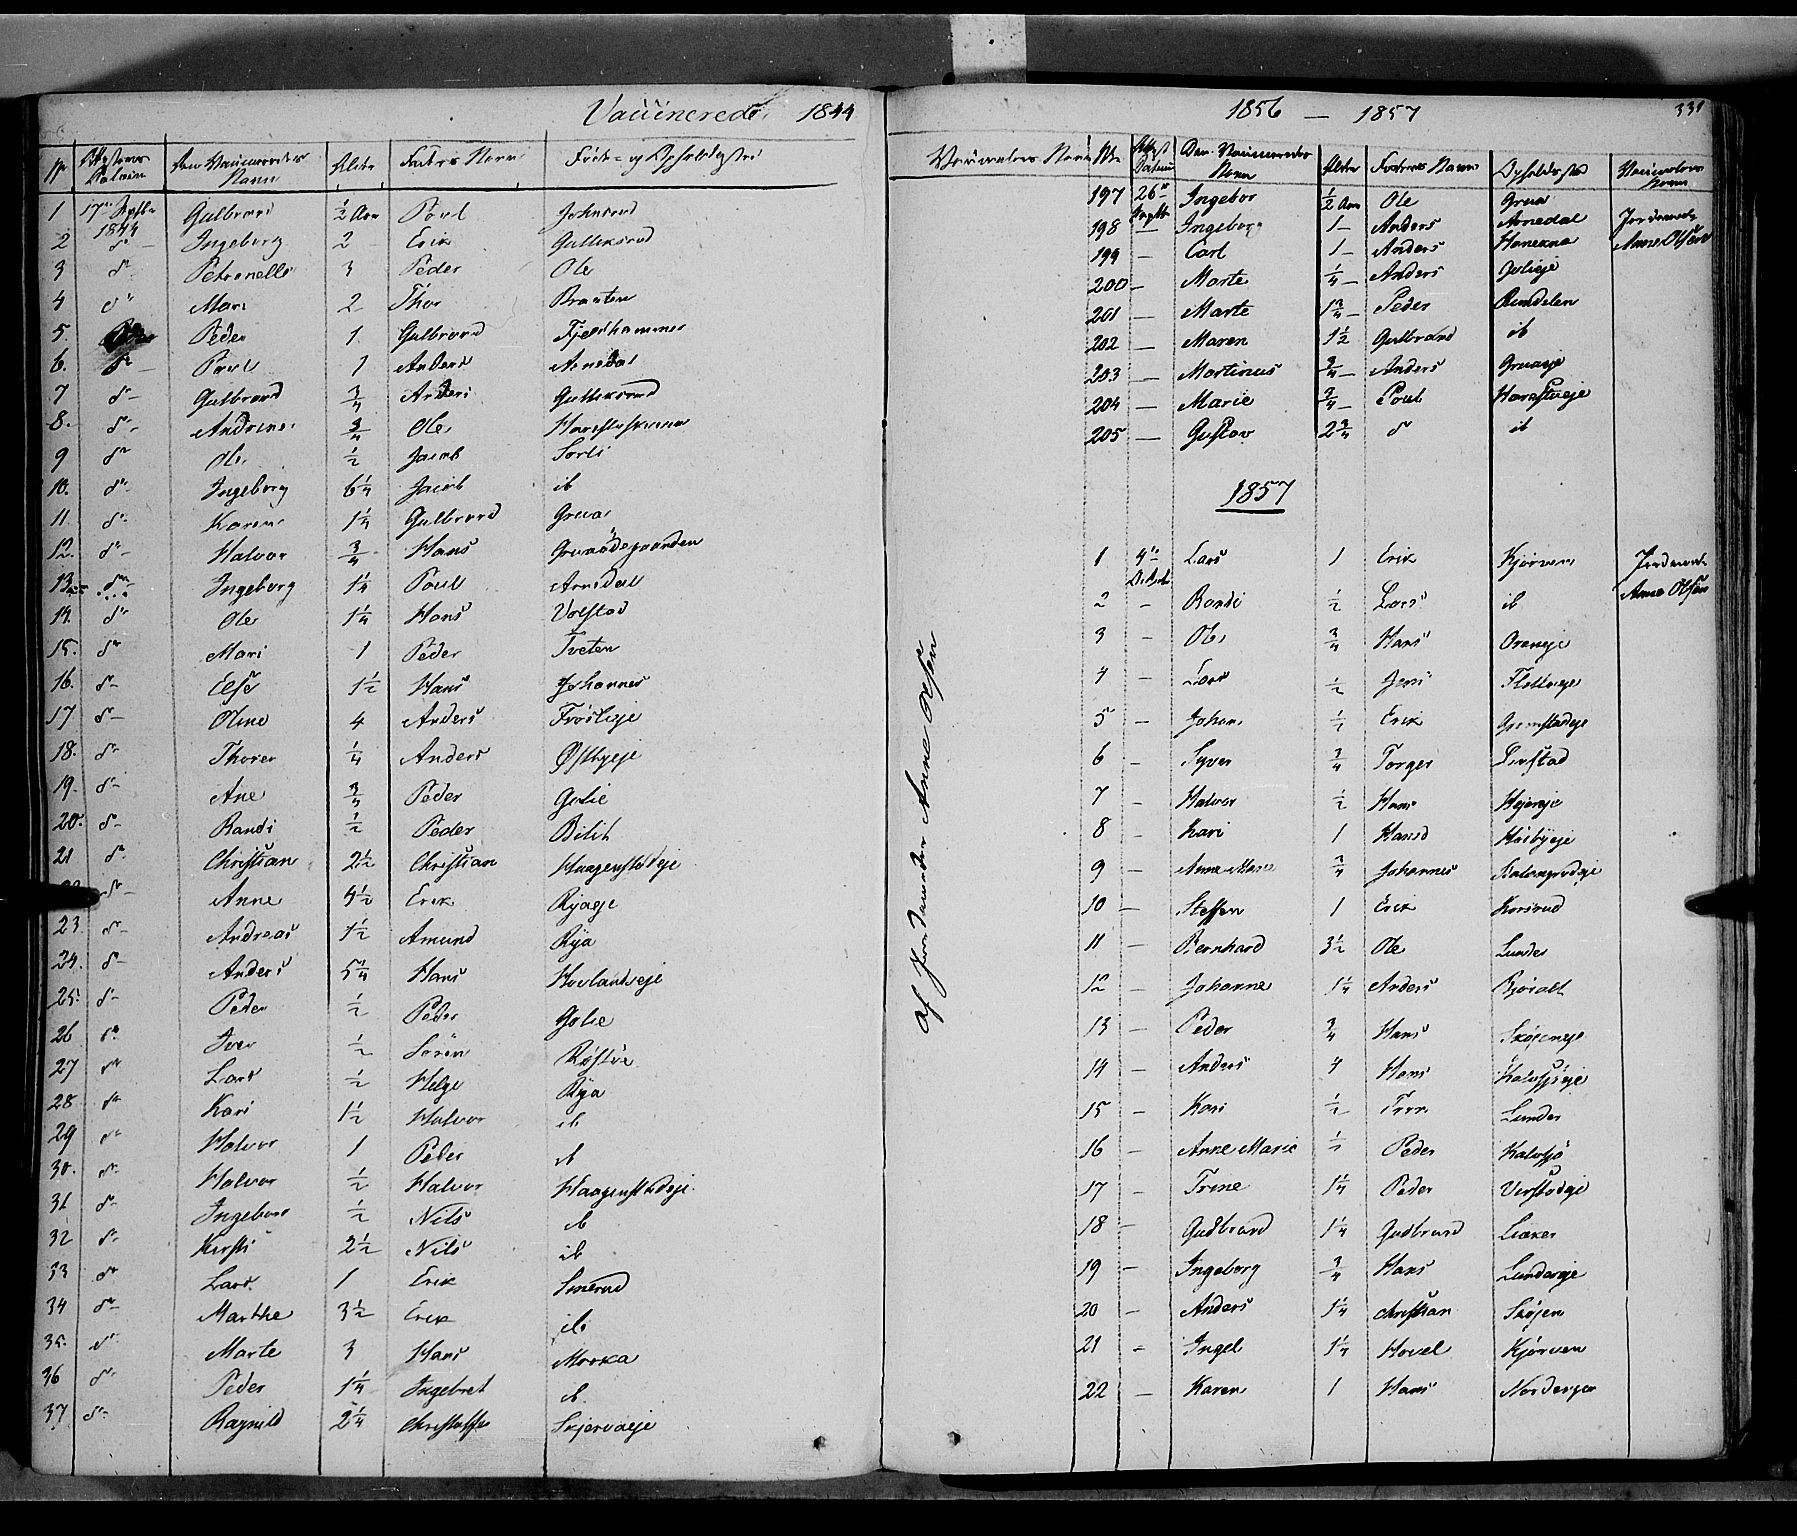 Vaccinerede 1844
Nr Attestens Datum Den Vaccineredes Navn Alder Faders Navn Føde- og Opholdssted
1 17de Septbr 1844 Gulbrand ½ Aar Poul Johnsrud
2 do Ingeborg 2 Erik Gulliksrud
3 do Petronelle 3 Peder Ole
4 do Mari 2 Thor Braaten
5. Peder 1 Gulbrand Fjeldhammer
6. do Poul 1 Anders Arnedal
7 do Gulbrand ¾ Anders Gulliksrud
8. do Andrine ¾ Ole
9 do Ole ½ Jacob Sorli
10. do Ingeborg 6¼ Jacob ib
11. do Karen 1¼ Gulbrand Grua
12. do Halvor ¾ Hans Gruaödegaarden
13 do Ingeborg 1¼ Poul Arnedal
14. do Ole 1¼ Hans Volstad
15. do Mari 1 Peder Tveten
16. do Else 1½ Hans Johannes
17 do Oline 4 Anders Frösleje
18. do Thorer ¼ Anders Østbyeje
19. do Ane ¾ Peder Golie
20. do Randi ½ Peder Bilit
21 do Christian 2½ Christian Haagenstadeje
do Anne 4½ Erik Ryaeje
23. do Andreas 1½ Amund Rya
24. do Anders 5¼ Hans Hovlandseje
25. do Peder ½ Peder Golie
26 do Iver ½ Sören Røstøe
27 do Lars ½ Helge Rya
28 do Kari 1½ Halvor ib
29 do Halvor 1 Peder ib
30. do Halvor ½ Halvor Haagenstadeje
31 do Ingeborg ½ Nils ib
32 do Kirsti 2½ Nils ib
33 do Lars 1 Erik Smerud
34 do Marthe 3½ Erik ib
35. do Marte 3 Hans Morka
36 do Peder 1¼ Ingebret ib
37 do Ragnild 2¼ Christoffer Skjervaeje
1856 — 1857
331
Vaccinators Navn Nr. Attest Datum Den Vaccineredes Navn Alder Faders Navn Opholdssted Vaccinators Navn
197 26de Septbr Ingebor ½ Aar Ole Grua Jordemoder Anne Olsen
198 — Ingeborg 1 — Anders Arnedal
199 — Carl 1 — Anders Hanekna
200 — Marte ¼ — Anders Julieje
201 — Marte 1¾ — Peder Rundelen
202 — Maren 1½ Gulbrand ib
203 — Martinus ¾ — Anders Gruaeje
204 — Marie ¾ — Poul Harestueje
205 — Gustav 2¾ do ib
1857
af Jordemoder Anne Olsen
1 4de Lars 1 Erik Kjørven Jordemoder Anne Olsen
2 - Randi ½ Lars ib
3 - Ole ¾ Hans Oreneje
4 - Lars ½ Jens Flattaeje
5 - Johan ½ Erik Grimstadeje
6 - Syver ¾ Torger Linstad
7 - Halvor ½ Hans
8 - Kari 1 Hans Höibyeje
9 - Anne Marie ¾ Johannes
10 - Steffen 1 Erik Korsrud
11 - Bernhard 3½ Ole Lunder
12 - Johanne 1¼ Anders Björalt
13 - Peder ¾ Hans Skøieneje
14 - Anders 4 Hans Kalvsjöeje
15 - Kari ½ Lunder
16 - Anne Marie ½ Peder Kalvsjö
17 - Trine 1¼ Peder Verstadeje
18 - Gudbrand 1¼ Gudbrand Lieker
19 - Ingeborg ¾ Hans Lundereje
20 - Anders 1¼ Christian Skøjen
21 - Ingel 1¼ Hovel Kjørven
22 - Karen 1 Hans Nordengen